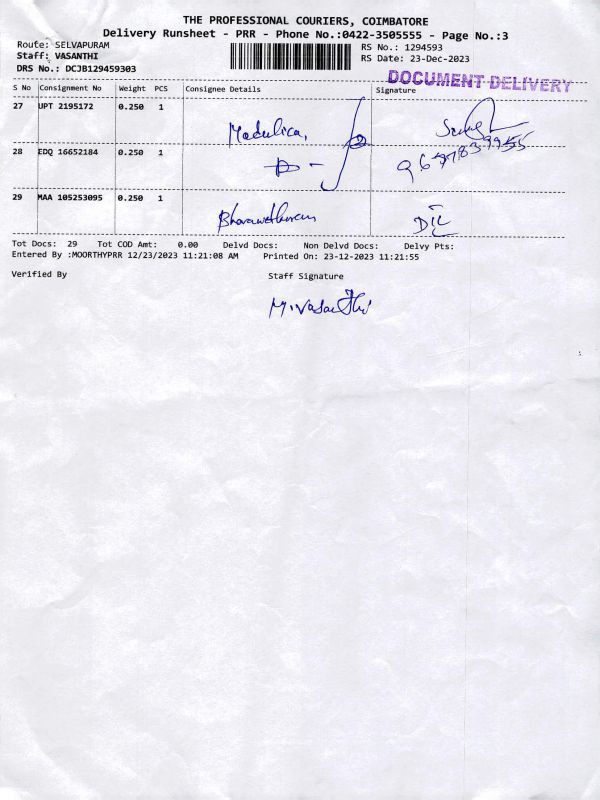 THE PROFESSIONAL COURIERS, COIMBATORE
Delivery Runsheet - PRR - Phone No.:0422-3505555 - Page No.:3
Route: SELVAPURAM
Staff: VASANTHI
DRS No.: DCJB129459303
RS No.: 1294593
RS Date: 23-Dec-2023
DOCUMENT DELIVERY
S No Consignment No Weight PCS Consignee Details Signature
27 UPT 2195172 0.250 1
Madulica,
28 EDQ 16652184 0.250 1
29 MAA 105253095 0.250 1
Tot Docs: 29 Tot COD Amt: 0.00 Delvd Docs: Non Delvd Docs: Delvy Pts:
Entered By :MOORTHYPRR 12/23/2023 11:21:08 AM Printed On: 23-12-2023 11:21:55
Verified By Staff Signature
M.Vasanthi